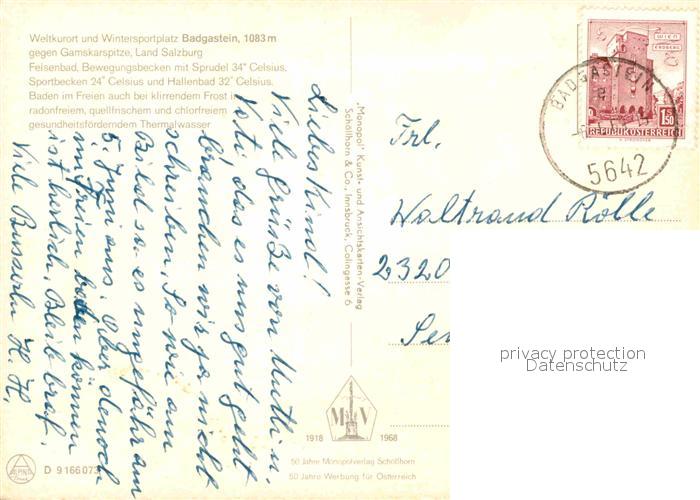 Weltkurort und Wintersportplatz Badgastein, 1083 m
gegen Gamskarspitze, Land Salzburg
Felsenbad, Bewegungsbecken mit Sprudel 34° Celsius,
Sportbecken 24° Celsius und Hallenbad 32° Celsius.
Baden im Freien auch bei klirrendem Frost in
radonfreiem, quellfrischem und chlorfreiem
gesundheitsförderndem Thermalwasser
Liebes Kind!
Viele Grüße von Mutti u.
Vati, das es uns gut geht
brauchen wir ja nicht
schreiben. So wie am
Bild so es ungefähr am
5. Juni aus. Aber dennoch
im Freien baden können
ist herlich. Bleib brav.
Viele Bussarln H. H.
„Monopol" Kunst- und Ansichtskarten-Verlag
Schöllhorn & Co., Innsbruck, Colingasse 6
WIEN
ERDBERG
1.50
REPUBLIK ÖSTERREICH
BADGASTEIN
5642
Frl.
Waltraud Rölle
2320
M V
1918 1968
50 Jahre Monopolverlag Schöllhorn
50 Jahre Werbung für Österreich
D 9 166 073
privacy protection
Datenschutz